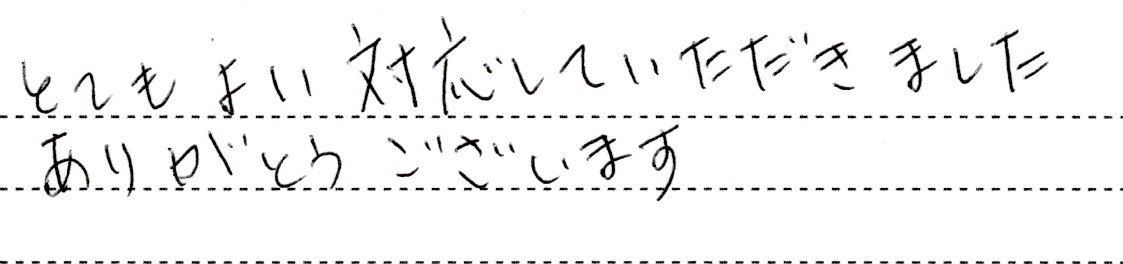 とてもよい対応していただきました
ありがとうございます